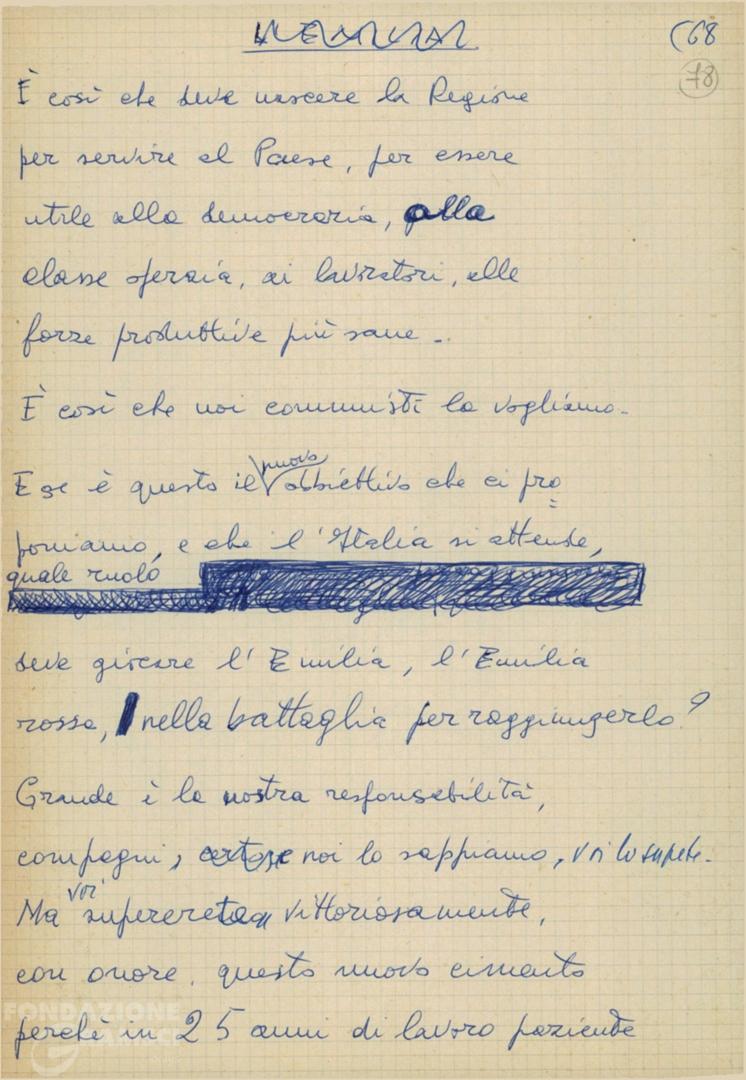 (68
78
È così che deve nascere la Regione
per servire al Paese, per essere
utile alla democrazia, alla
classe operaia, ai lavoratori, alle
forze produttive più sane.
È così che noi comunisti la vogliamo.
E se è questo il nuovo obbiettivo che ci pro=
poniamo, e che l'Italia si attende,
quale ruolo
deve giocare l'Emilia, l'Emilia
rossa, nella battaglia per raggiungerlo?
Grande è la nostra responsabilità,
compagni, noi lo sappiamo, voi lo sapete.
Ma voi supererete vittoriosamente,
con onore, questo nuovo cimento
perché in 25 anni di lavoro paziente
FONDAZIONE
GRAMSCI